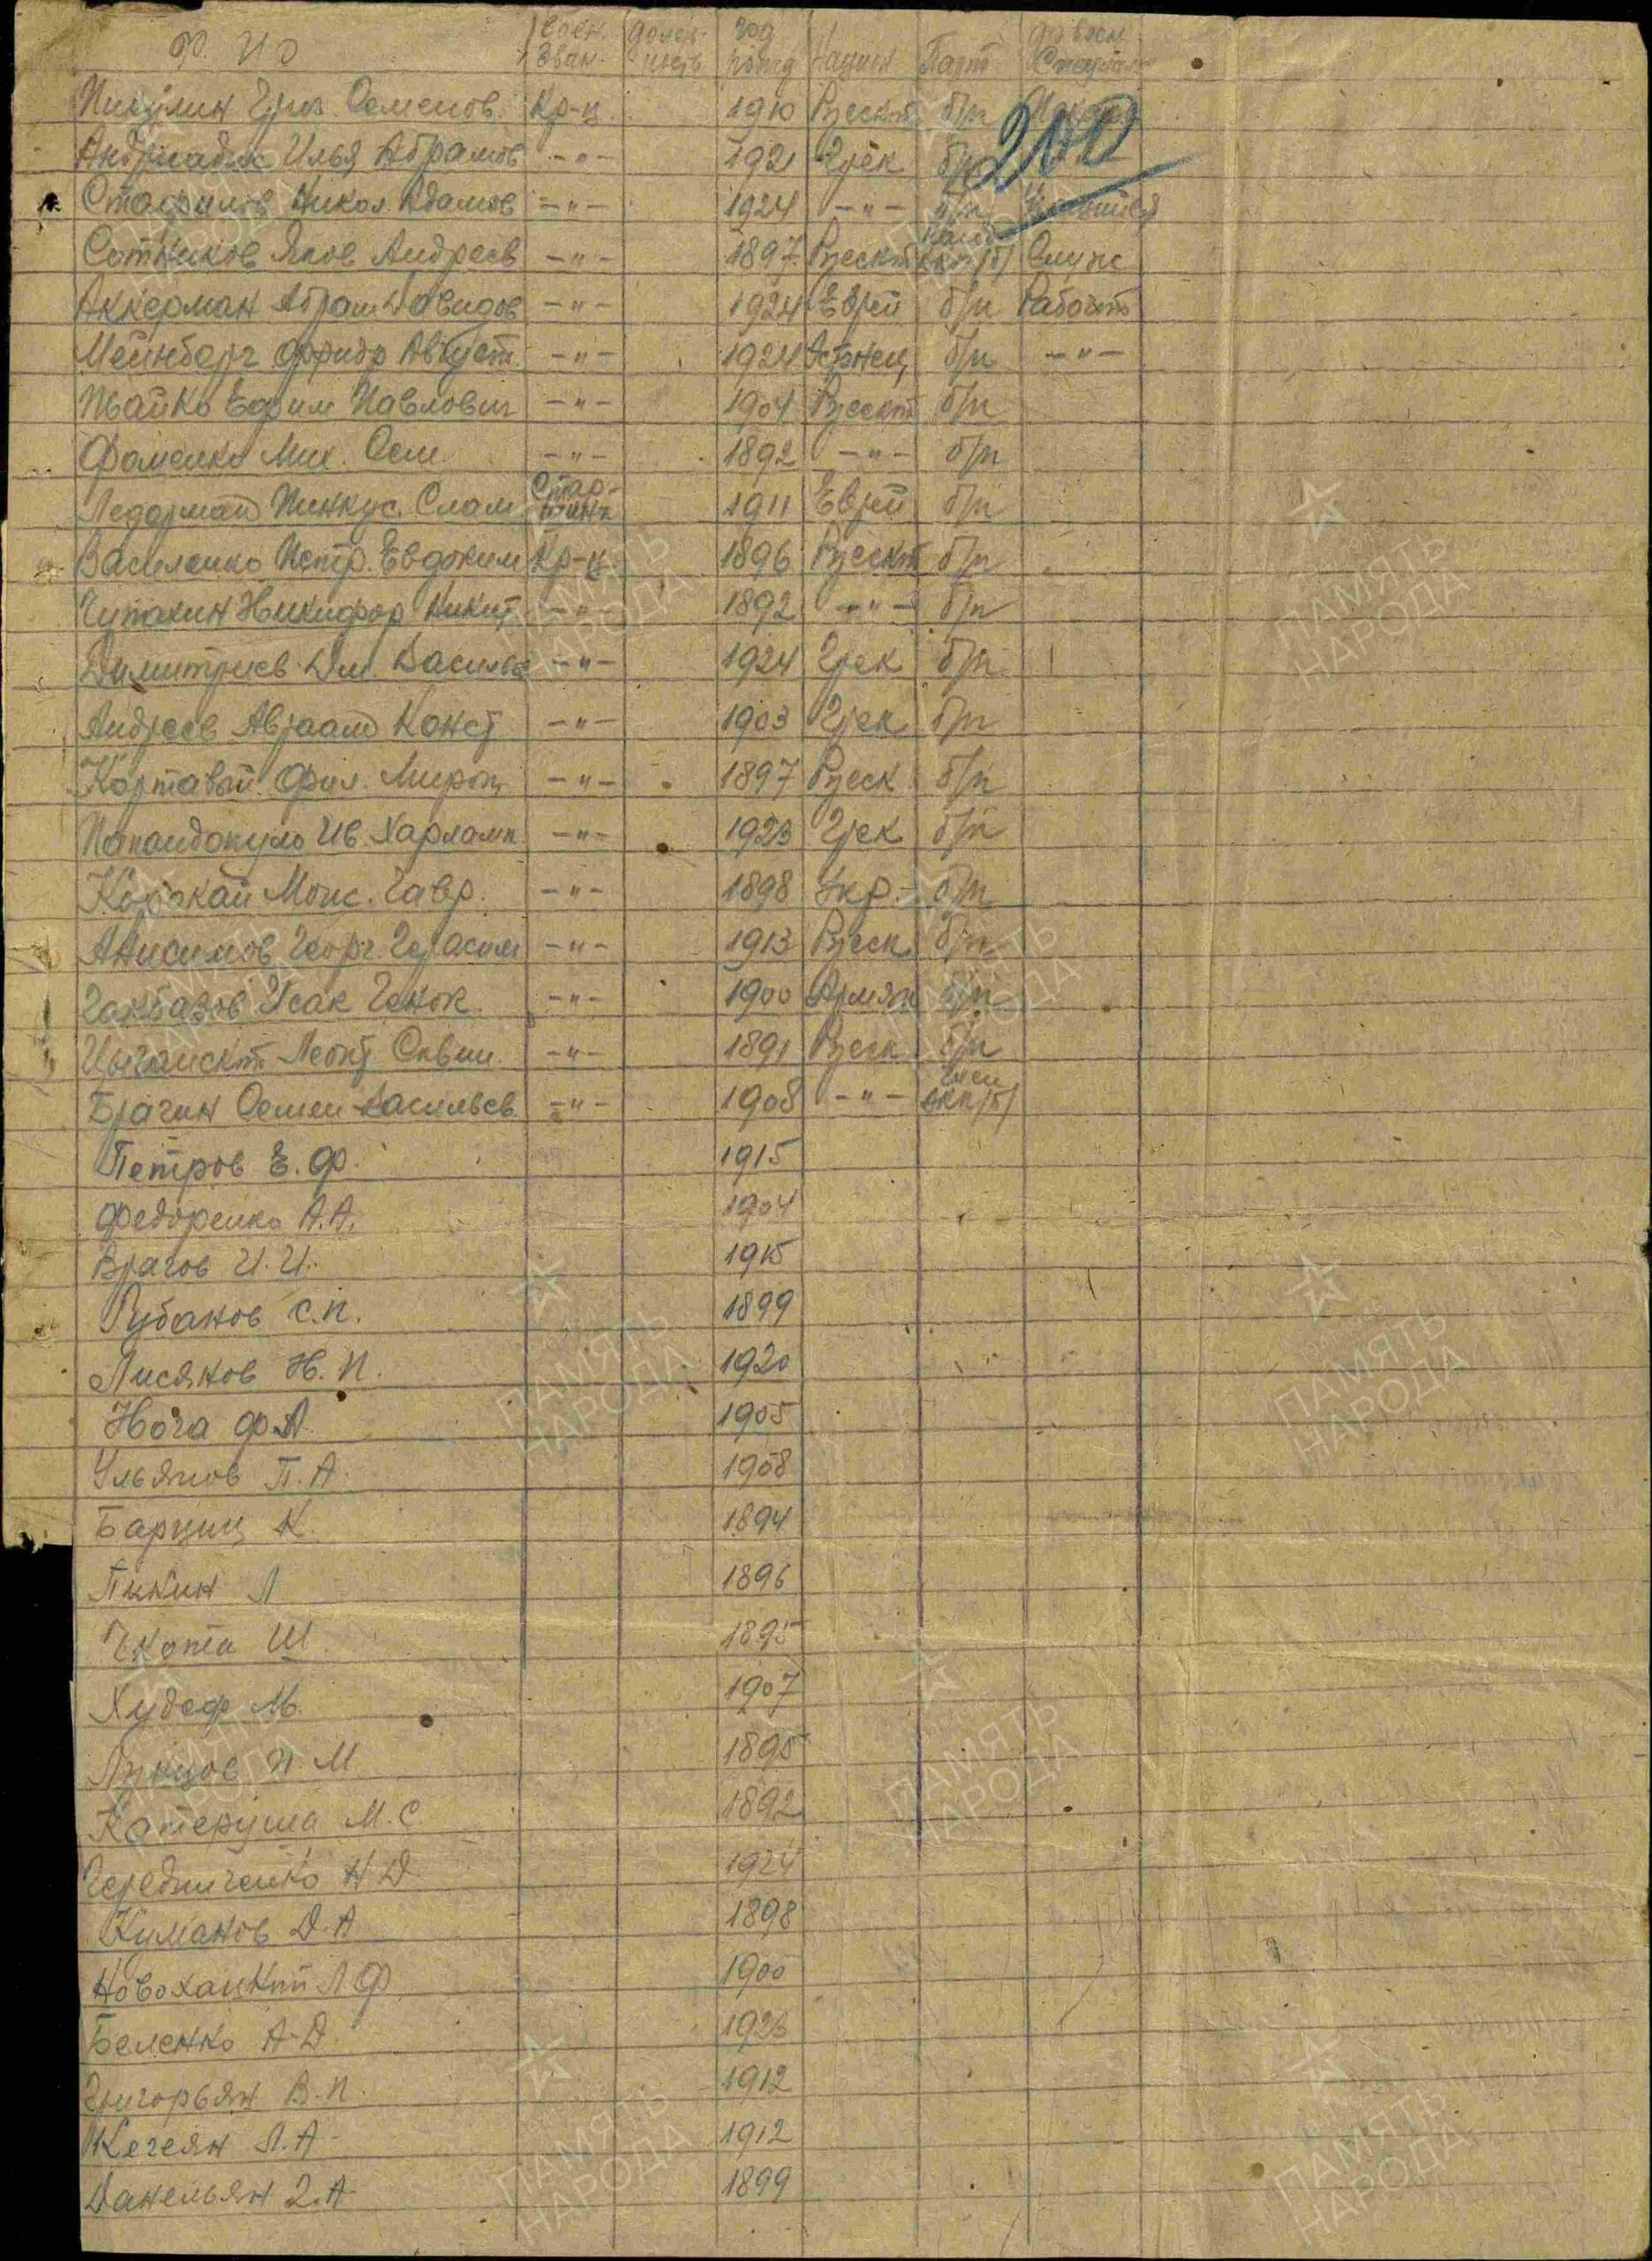 Ф. И О Воен. Зван. Долж-ность год рожд Национ Парт Довоен. Специал
Пикулин Григ. Семенов. Кр-ц. 1910 Русский б/п
200
Андриадис Илья Абрамов -"- 1921 Грек б/п
Стафилов Никол. Адамов -"- 1924 -"- б/п Учащийся
Сотников Яков Андреев -"- 1897 Русский Канд ВКП/б/ Служ
Аккерман Абрам Давидов -"- 1924 Еврей б/п Рабочий
Мейнберг Фридр Август. -"- 1924 б/п -"-
Швайко Ефим Павлович -"- 1904 Русский б/п
Фоменко Мих. Сем. -"- 1892 -"- б/п
Ледерман Пинкус. Слом Стар-шина 1911 Еврей б/п
Василенко Петр. Евдоким Кр-ц. 1896 Русский б/п
Чупахин Никифор Никит -"- 1892 -"- б/п
Димитриев Дм. Василье -"- 1924 Грек б/п
Андреев Авраам Конст -"- 1903 Грек б/п
Картавый Фил. Мирон -"- 1897 Русск б/п
Папандопуло Ив. Харламп -"- 1923 Грек б/п
Моис. Гавр. -"- 1898 Укр. б/п
Анисимов Георг. Герасим -"- 1913 Русск б/п
Исак -"- 1900 Армян б/п
Цыганский Леонт -"- 1891 Русск б/п
Брагин Семен Васильев -"- 1908 -"- член ВКП/б/
Петров Е. Ф. 1915
Федоренко А.А. 1904
Врагов И.И. 1915
Рубанов С.П. 1899
Лисяков Н.П. 1920
Нога Ф.А. 1905
Ульянов П.А. 1908
Барциц К. 1894
Пынин Л 1896
Чкота Ш. 1895
Худеф М. 1907
Лунцов И.М 1895
Катеруша М.С 1892
Чередниченко Н Д. 1924
Куманов Д.А 1898
Новохацкий Л Ф. 1900
Беленко А-Д. 1923
Григорьян В.П. 1912
Кегеян Л.А 1912
Данельян Г.А 1899